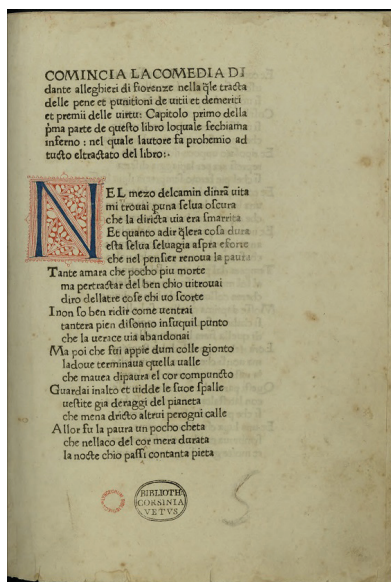 COMINCIA LACOMEDIA DI
dante alleghieri di fiorenze nella q̄le tracta
delle pene et punitioni de uitii et demeriti
et premii delle uirtu: Capitolo primo della
p̄ma parte de questo libro loquale sechiama
inferno : nel quale lautore fa prohemio ad
tucto eltractato del libro:.
NEL mezo delcamin dinr̄a uita
mi trouai p̱una selua oscura
che la diricta uia era smarrita
Et quanto adir q̄lera cosa dura
esta selua seluagia aspra eforte
che nel pensier renoua la paura
Tante amara che pocho piu morte
ma pertractar del ben chio uitrouai
diro dellatre cose chi uo scorte
I non so ben ridir come uentrai
tantera pien disonno insuquil punto
che la uerace uia abandonai
Ma poi che fui appie dum colle gionto
ladoue terminaua quella ualle
che mauea dipaura el cor compuncto
Guardai inalto et uidde le suoe spalle
uestite gia deraggi del pianeta
che mena dricto altrui perogni calle
Allor fu la paura un pocho cheta
che nellaco del cor mera durata
la nocte chio passi contanta pieta
BIBLIOTH
CORSINIA
VETVS